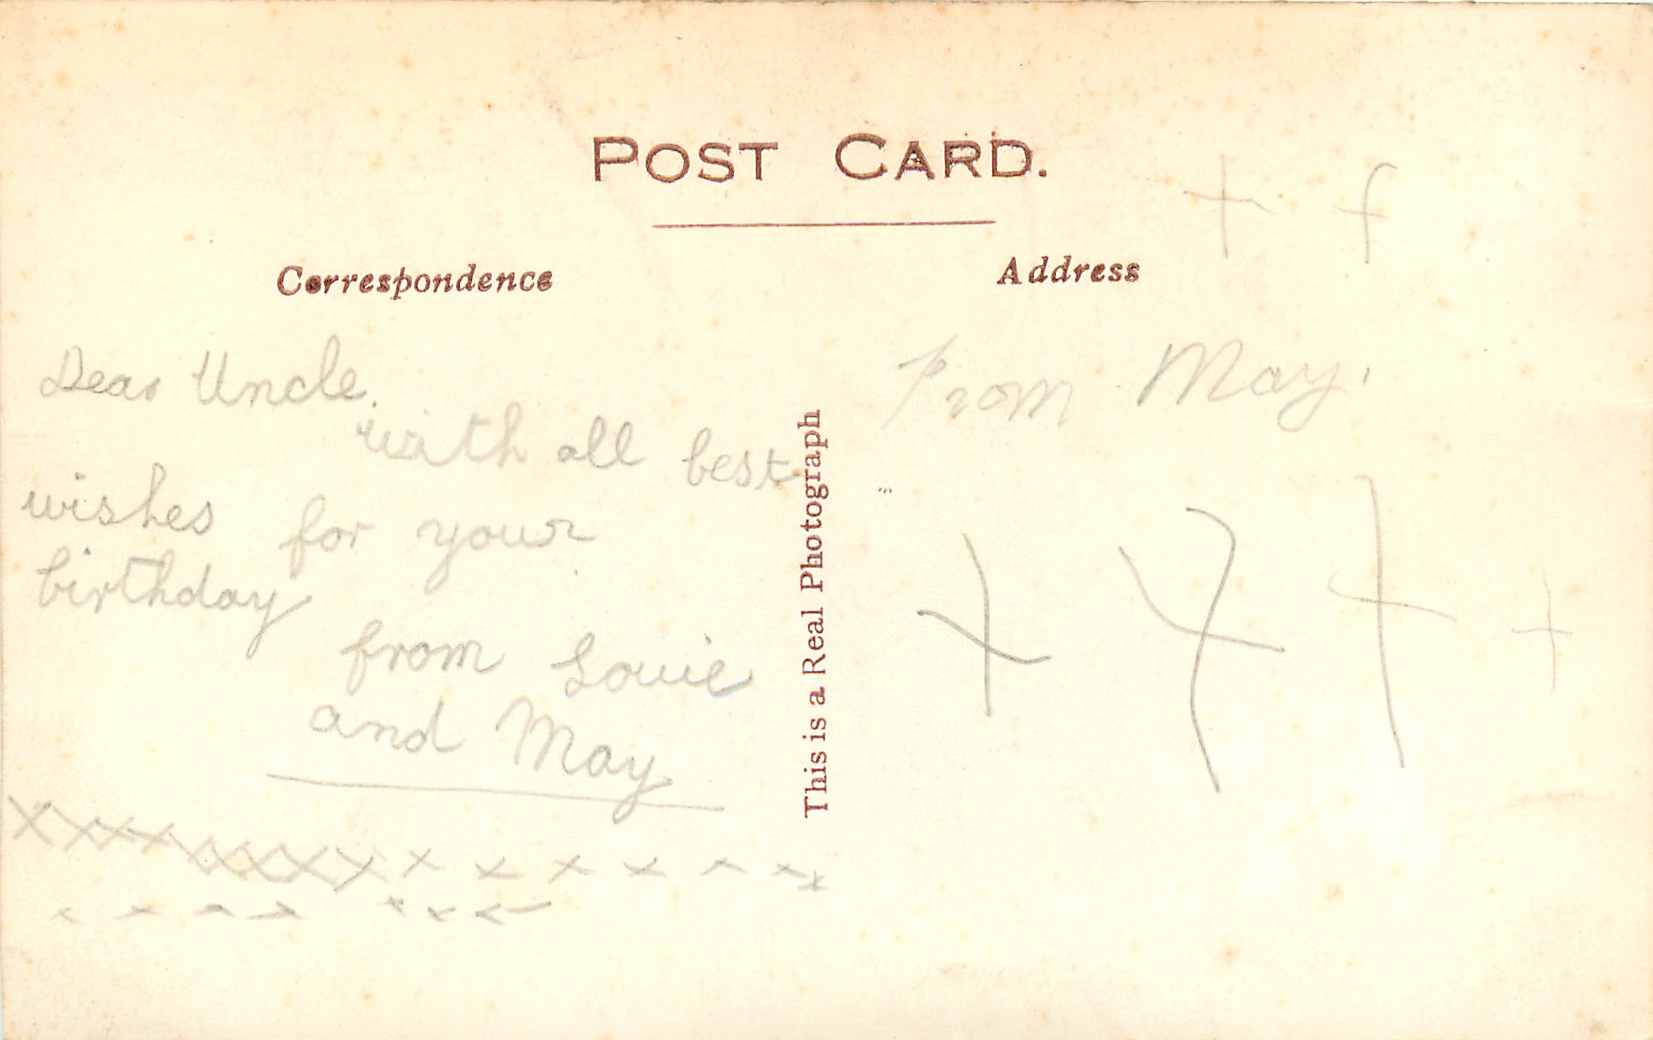 POST CARD.
Correspondence
Address
Dear Uncle.
with all best
wishes for your
birthday
from Louie
and May
X X X X X X X X X X X X X X X
x x x x x x x x
This is a Real Photograph
+ +
From May.
+ + + +